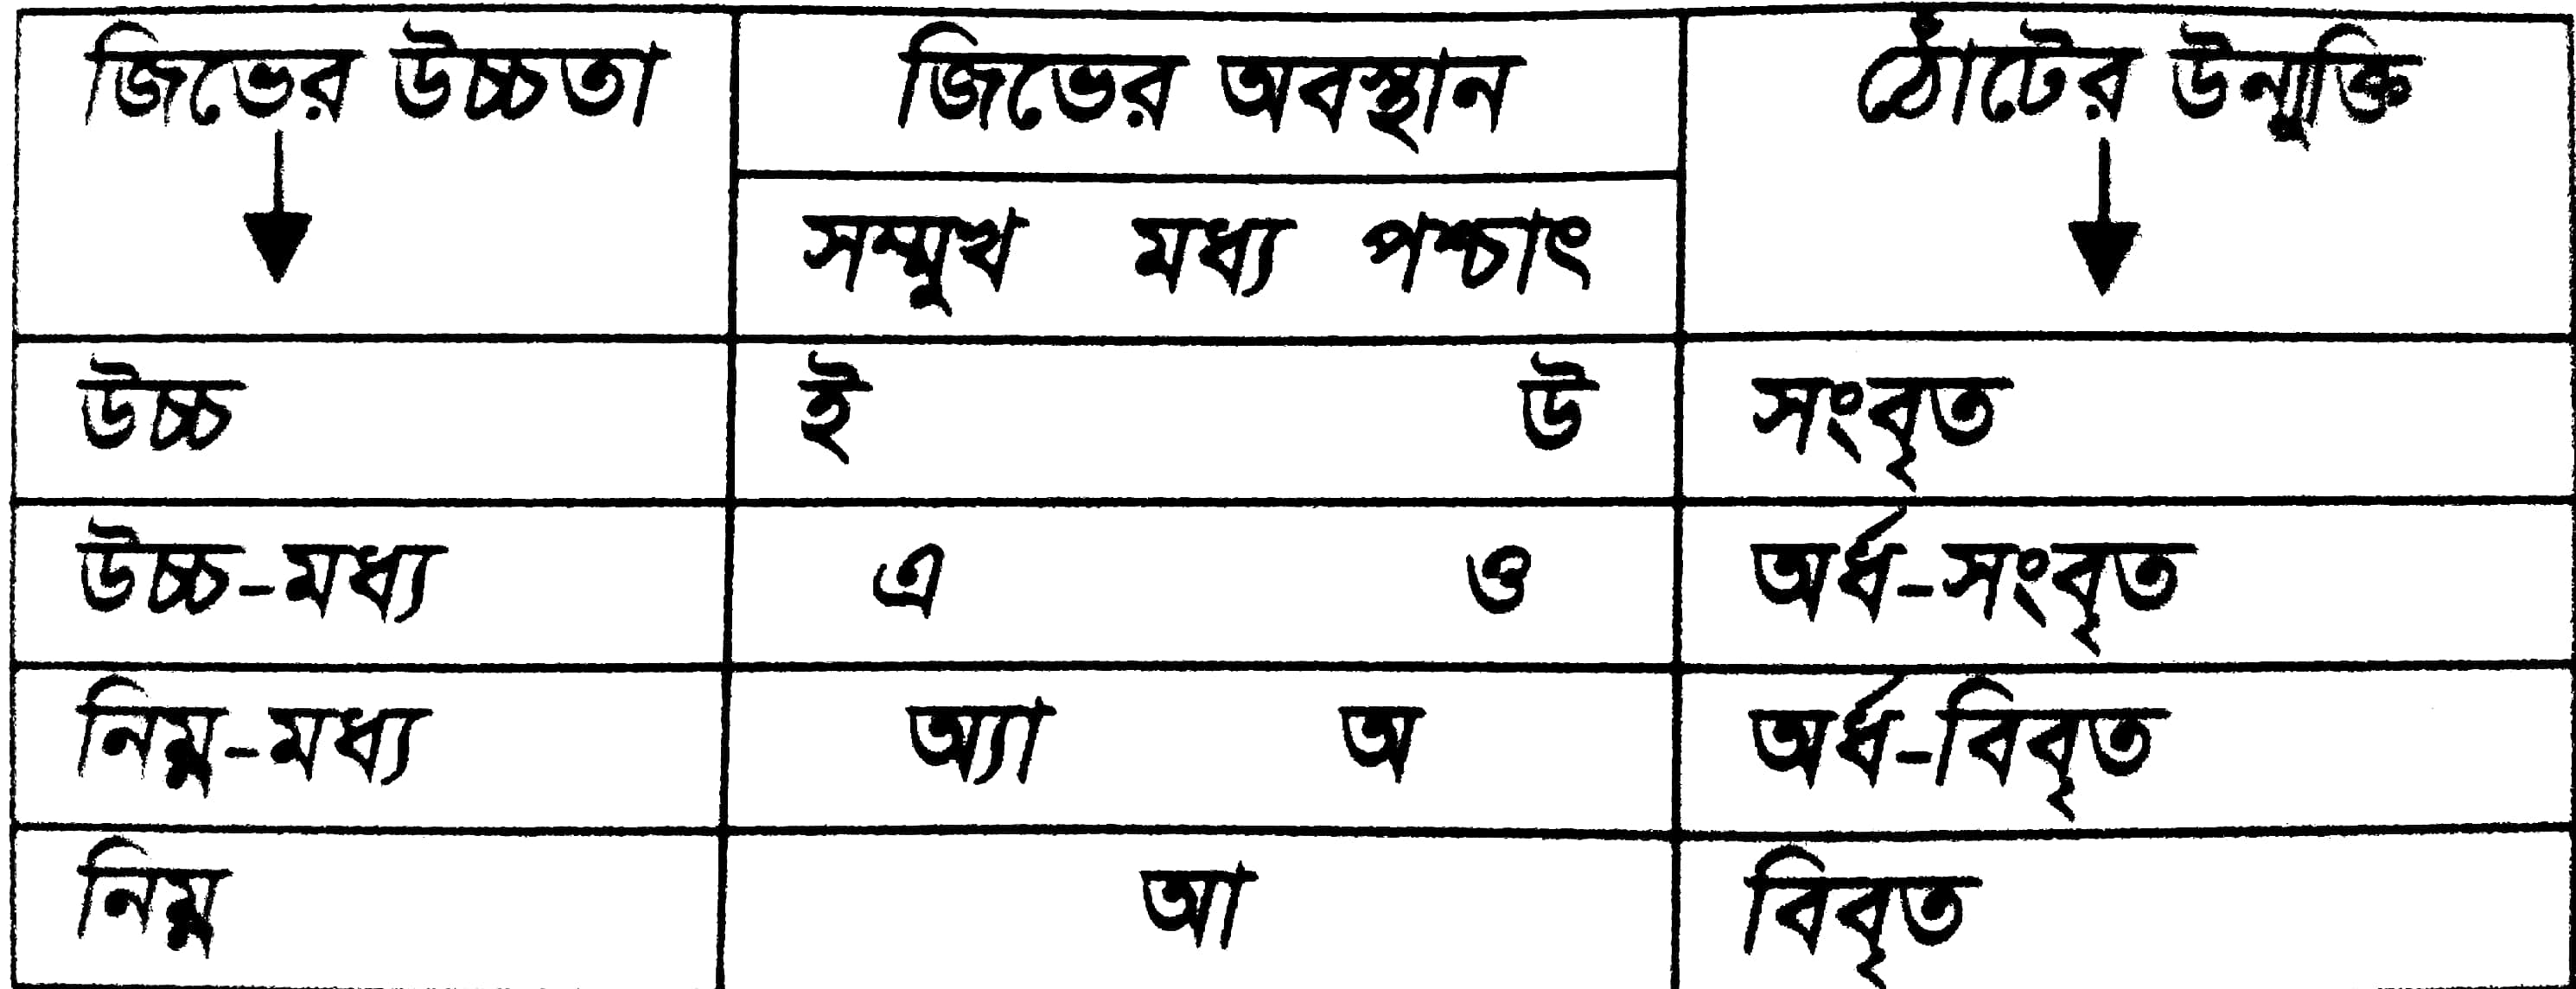 জিভের উচ্চতা জিভের অবস্থান ঠোঁটের উন্মুক্তি
সম্মুখ মধ্য পশ্চাৎ
উচ্চ ই উ সংবৃত
উচ্চ-মধ্য এ ও অর্ধ-সংবৃত
নিম্ন-মধ্য অ্যা অ অর্ধ-বিবৃত
নিম্ন আ বিবৃত